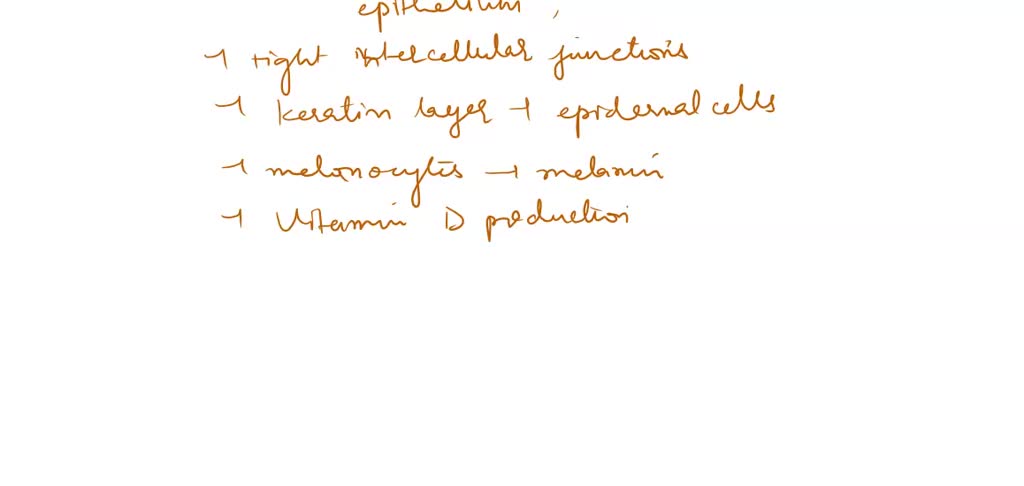 epithelium,
→ tight intercellular junctions
→ keratin layer → epidermal cells
→ melonocytes → melanin
→ Vitamin D production